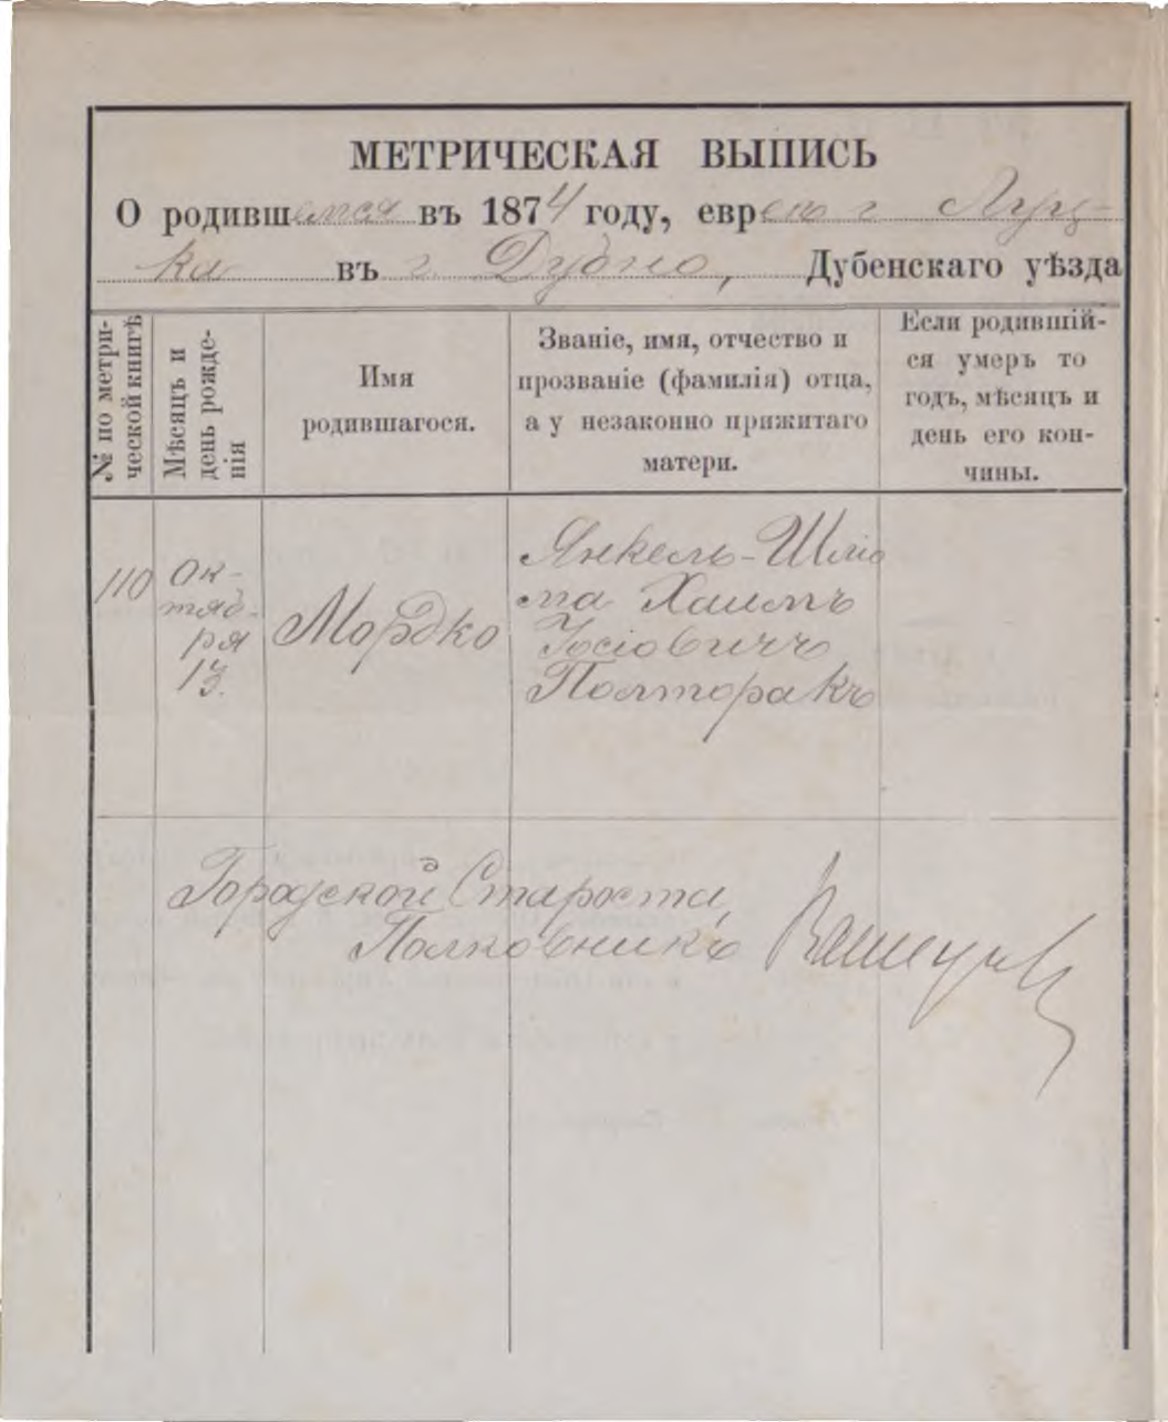 МЕТРИЧЕСКАЯ ВЫПИСЬ
О родившемся въ 1874 году, евреѣ г. Луц-
ка въ г. Дубно, Дубенскаго уѣзда
№ по метри-
ческой книгѣ
Мѣсяцъ и
день рожде-
нія
Имя
родившагося.
Званіе, имя, отчество и
прозваніе (фамилія) отца,
а у незаконно прижитаго
матери.
Если родившій-
ся умеръ то
годъ, мѣсяцъ и
день его кон-
чины.
110
Ок-
тяб-
ря
13.
Мордко
Янкель-Шліо
ма Хаимъ
Іосіовичъ
Полторакъ
Городской Староста,
Полковникъ